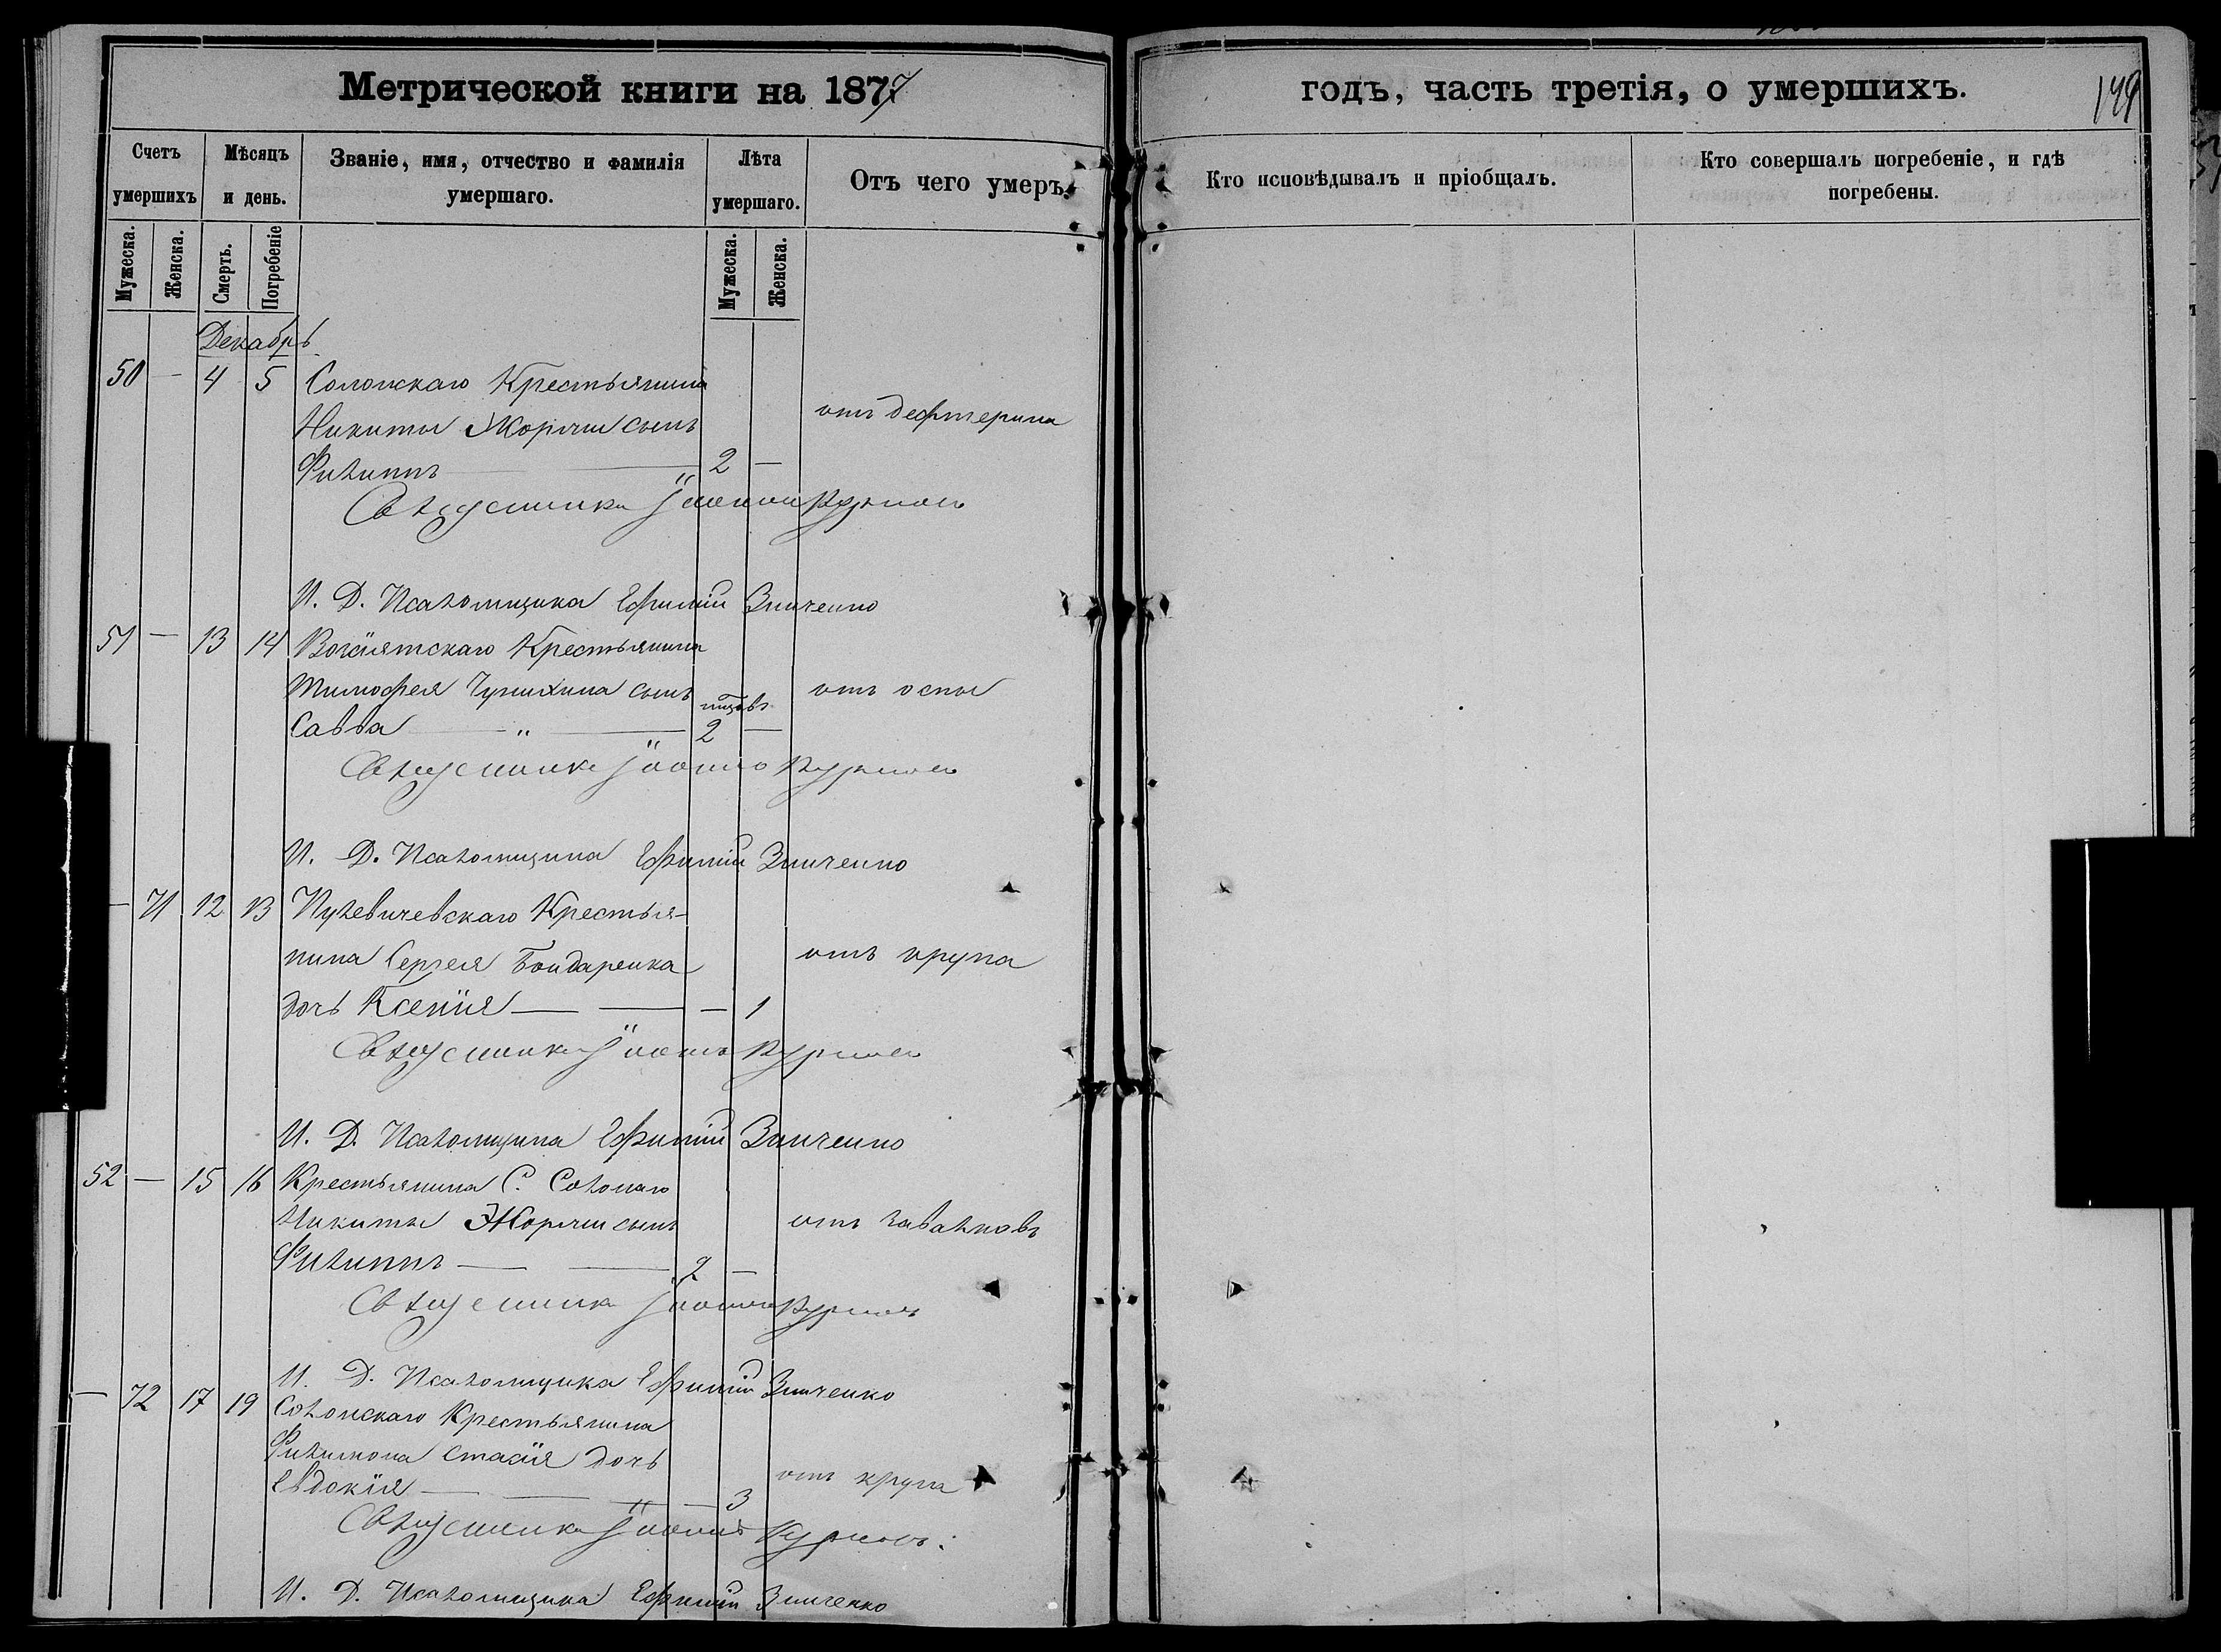 Метрической книги на 1877
годъ, часть третія, о умершихъ.
149
Счетъ умершихъ
Мѣсяцъ и день.
Званіе, имя, отчество и фамилія умершаго.
Лѣта умершаго.
Отъ чего умеръ.
Кто исповѣдывалъ и пріобщалъ.
Кто совершалъ погребеніе, и гдѣ погребены.
Мужеска.
Женска.
Смерть.
Погребеніе
Мужеска.
Женска.
Декабрь
50 — 4 5 Солонскаго Крестьянина
Никиты сынъ отъ дефтерита
Филиппъ — 2 —
Священникъ Іоаннъ
И. Д. Псаломщика Ефимій Зинченко
51 — 13 14 Крестьянина
Тимофея сынъ отъ оспы
мцовъ
Савва — " — 2 —
Священникъ Іоаннъ
И. Д. Псаломщика Ефимій Зинченко
— 71 12 13 Крестья-
нина Сергея Бондаренка отъ крупа
дочь Ксенія — — — 1
Священникъ Іоаннъ
И. Д. Псаломщика Ефимій Зинченко
52 — 15 16 Крестьянина С. Солонаго
Никиты сынъ отъ
Филиппъ — — 2 —
Священникъ Іоаннъ
И. Д. Псаломщика Ефимій Зинченко
— 72 17 19 Солонскаго Крестьянина
Филимона дочь
Евдокія — — — — 3 отъ крупа
Священникъ Іоаннъ
И. Д. Псаломщика Ефимій Зинченко